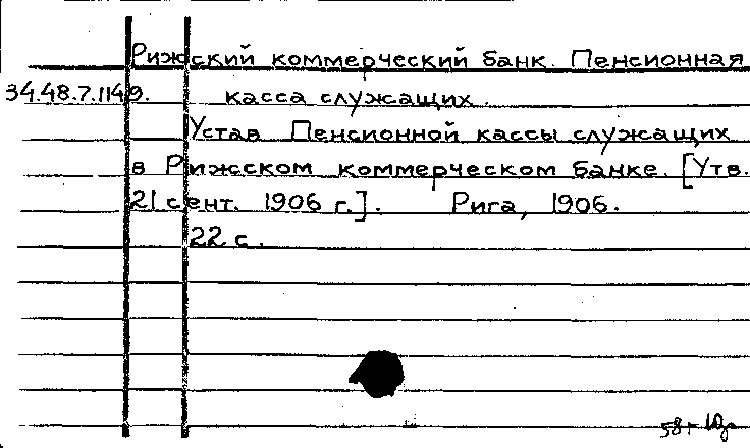 Рижский коммерческий банк. Пенсионная
34.48.7.1149. касса служащих.
Устав Пенсионной кассы служащих
в Рижском коммерческом банке. [Утв.
21 сент. 1906 г.]. Рига, 1906.
22 с.